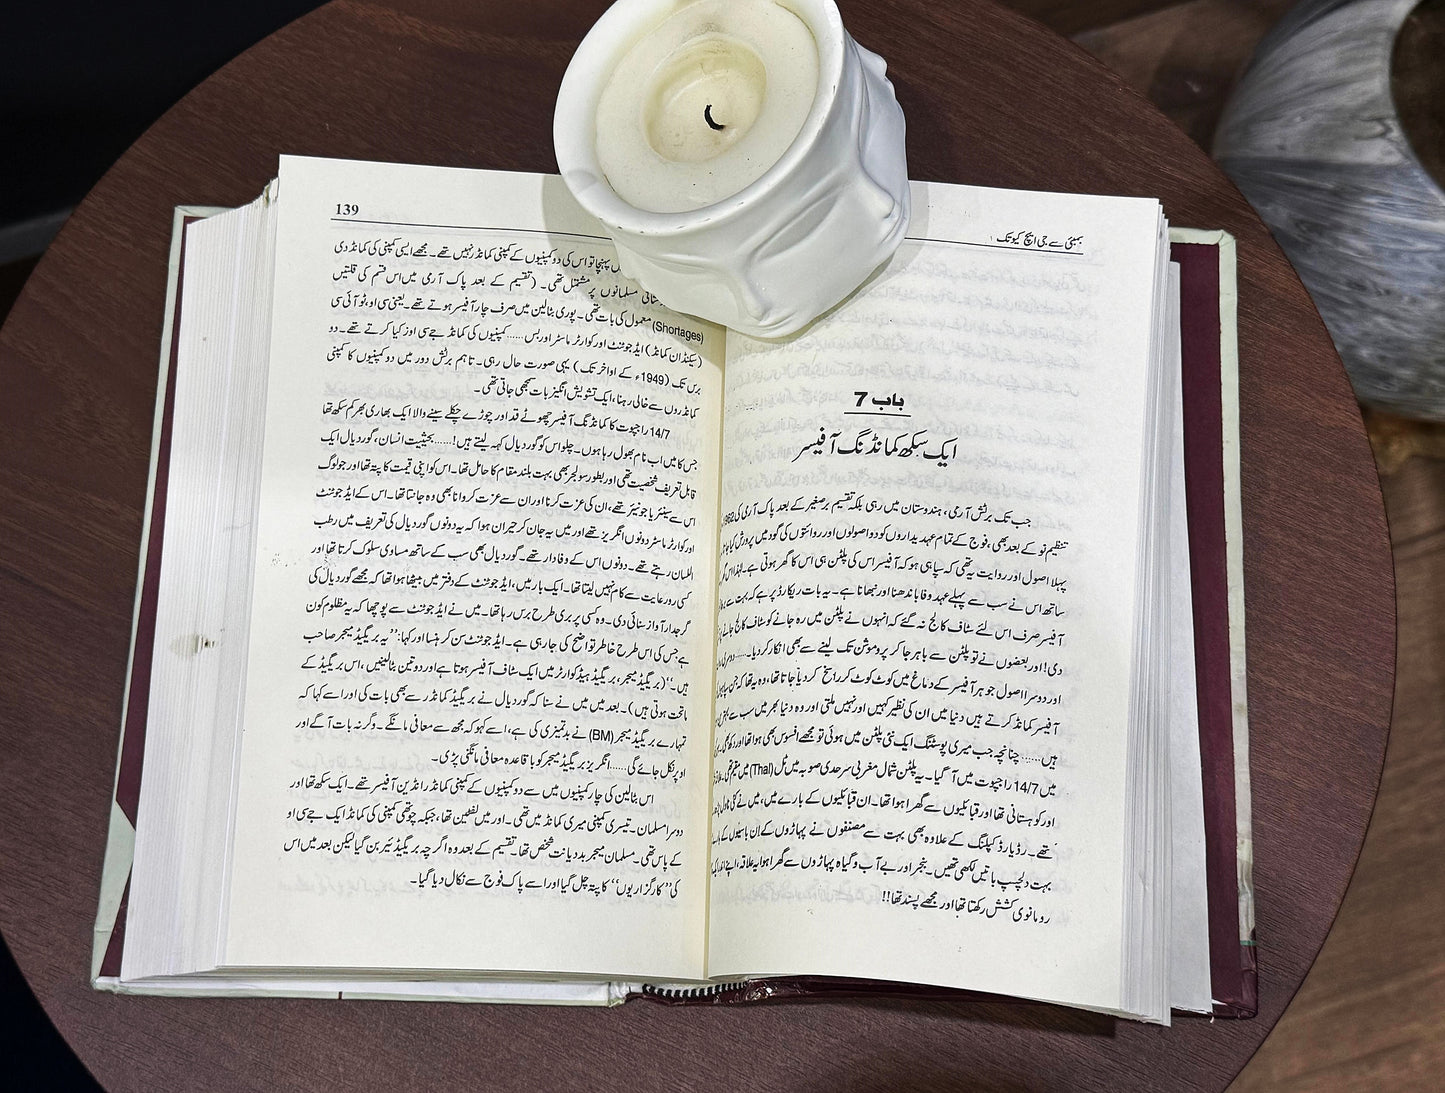 بمبئی سے جی ایچ کیو تک
باب 7
ایک سکھ کمانڈنگ آفیسر
جب تک برٹش آرمی، ہندوستان میں رہی بلکہ تقسیم برصغیر کے بعد پاک آرمی کی 1962ء
تنظیم نو کے بعد بھی، فوج کے تمام عہدیداروں کو دو اصولوں اور روائتوں کی گود میں پرورش کیا جاتا
پہلا اصول اور روایت یہ تھی کہ سپاہی ہو کہ آفیسر اس کی پلٹن ہی اس کا گھر ہوتی ہے۔ لہٰذا اس گھر
ساتھ اس نے سب سے پہلے عہد وفا باندھنا اور نبھانا ہے۔ یہ بات ریکارڈ پر ہے کہ بہت سے
آفیسر صرف اس لئے سٹاف کالج نہ گئے کہ انہوں نے پلٹن میں رہ جانے کو سٹاف کالج جانے پر
دی! اور بعضوں نے تو پلٹن سے باہر جا کر پروموشن تک لینے سے بھی انکار کر دیا۔.....دوسرا
اور دوسرا اصول جو ہر آفیسر کے دماغ میں کوٹ کوٹ کر راسخ کر دیا جاتا تھا، وہ یہ تھا کہ جن
آفیسر کمانڈ کرتے ہیں دنیا میں ان کی نظیر کہیں اور نہیں ملتی اور وہ دنیا بھر میں سب سے بہترین
ہیں......چنانچہ جب میری پوسٹنگ ایک نئی پلٹن میں ہوئی تو مجھے افسوس بھی ہوا تھا اور دکھ بھی۔
میں 14/7 راجپوت میں آ گیا۔ یہ پلٹن شمال مغربی سرحدی صوبہ میں ٹل (Thal) میں مقیم تھی۔ علاقہ
اور کوہستانی تھا اور قبائلیوں سے گھرا ہوا تھا۔ ان قبائلیوں کے بارے میں، میں نے کئی ناول پڑھے
تھے۔ رڈیارڈ کپلنگ کے علاوہ بھی بہت سے مصنفوں نے پہاڑوں کے ان باسیوں کے بارے
بہت دلچسپ باتیں لکھی تھیں۔ بنجر اور بے آب و گیاہ پہاڑوں سے گھرا ہوا یہ علاقہ، اپنے اندر
رومانوی کشش رکھتا تھا اور مجھے پسند تھا!!
139
پہنچا تو اس کی دو کمپنیوں کے کمپنی کمانڈر نہیں تھے۔ مجھے ایسی کمپنی کی کمانڈ دی
مسلمانوں پر مشتمل تھی۔ (تقسیم کے بعد پاک آرمی میں اس قسم کی قلتیں
(Shortages) معمول کی بات تھی۔ پوری بٹالین میں صرف چار آفیسر ہوتے تھے۔ یعنی سی او، ٹو آئی سی
(سیکنڈ ان کمانڈ) ایڈجوٹنٹ اور کوارٹر ماسٹر اور بس......کمپنیوں کی کمانڈ جے سی اوز کیا کرتے تھے۔ دو
برس تک (1949ء کے اواخر تک) یہی صورت حال رہی۔ تاہم برٹش دور میں دو کمپنیوں کا کمپنی
کمانڈروں سے خالی رہنا، ایک تشویش انگیز بات سمجھی جاتی تھی۔
14/7 راجپوت کا کمانڈنگ آفیسر چھوٹے قد اور چوڑے چکلے سینے والا ایک بھاری بھر کم سکھ تھا
جس کا میں اب نام بھول رہا ہوں۔ چلو اس کو گوردیال کہہ لیتے ہیں!......بحیثیت انسان، گوردیال ایک
قابل تعریف شخصیت تھی اور بطور سولجر بھی بہت بلند مقام کا حامل تھا۔ اس کو اپنی قیمت کا پتہ تھا اور جو لوگ
اس سے سینئر یا جونیئر تھے، ان کی عزت کرنا اور ان سے عزت کروانا بھی وہ جانتا تھا۔ اس کے ایڈجوٹنٹ
اور کوارٹر ماسٹر دونوں انگریز تھے اور میں یہ جان کر حیران ہوا کہ یہ دونوں گوردیال کی تعریف میں رطب
اللسان رہتے تھے۔ دونوں اس کے وفادار تھے۔ گوردیال بھی سب کے ساتھ مساوی سلوک کرتا تھا اور
کسی رورعایت سے کام نہیں لیتا تھا۔ ایک بار میں، ایڈجوٹنٹ کے دفتر میں بیٹھا ہوا تھا کہ مجھے گوردیال کی
گرجدار آواز سنائی دی۔ وہ کسی پر بری طرح برس رہا تھا۔ میں نے ایڈجوٹنٹ سے پوچھا کہ یہ مظلوم کون
ہے جس کی اس طرح خاطر تواضع کی جا رہی ہے۔ ایڈجوٹنٹ سن کر ہنسا اور کہا: ”یہ بریگیڈ میجر صاحب
ہیں۔“ (بریگیڈ میجر، بریگیڈ ہیڈکوارٹر میں ایک سٹاف آفیسر ہوتا ہے اور دو تین بٹالینیں، اس بریگیڈ کے
ماتحت ہوتی ہیں)۔ بعد میں میں نے سنا کہ گوردیال نے بریگیڈ کمانڈر سے بھی بات کی اور اسے کہا کہ
تمہارے بریگیڈ میجر (BM) نے بدتمیزی کی ہے، اسے کہو کہ مجھ سے معافی مانگے۔ وگرنہ بات آگے اور
اوپر نکل جائے گی......انگریز بریگیڈ میجر کو باقاعدہ معافی مانگنی پڑی۔
اس بٹالین کی چار کمپنیوں میں سے دو کمپنیوں کے کمپنی کمانڈر انڈین آفیسر تھے۔ ایک سکھ تھا اور
دوسرا مسلمان۔ تیسری کمپنی میری کمانڈ میں تھی۔ اور میں لفٹین تھا، جبکہ چوتھی کمپنی کی کمانڈ ایک جے سی او
کے پاس تھی۔ مسلمان میجر بددیانت شخص تھا۔ تقسیم کے بعد وہ اگرچہ بریگیڈئیر بن گیا لیکن بعد میں اس
کی ”کارگزاریوں“ کا پتہ چل گیا اور اسے پاک فوج سے نکال دیا گیا۔